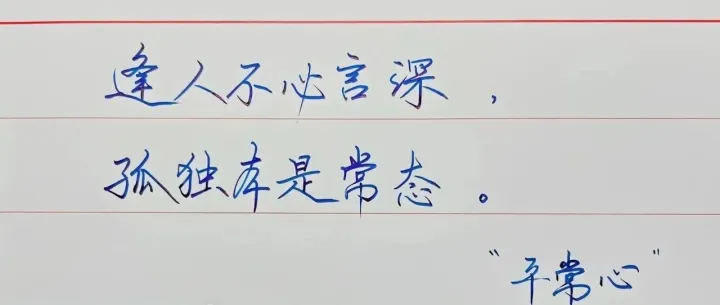 逢人不必言深，
孤独本是常态。
"平常心"